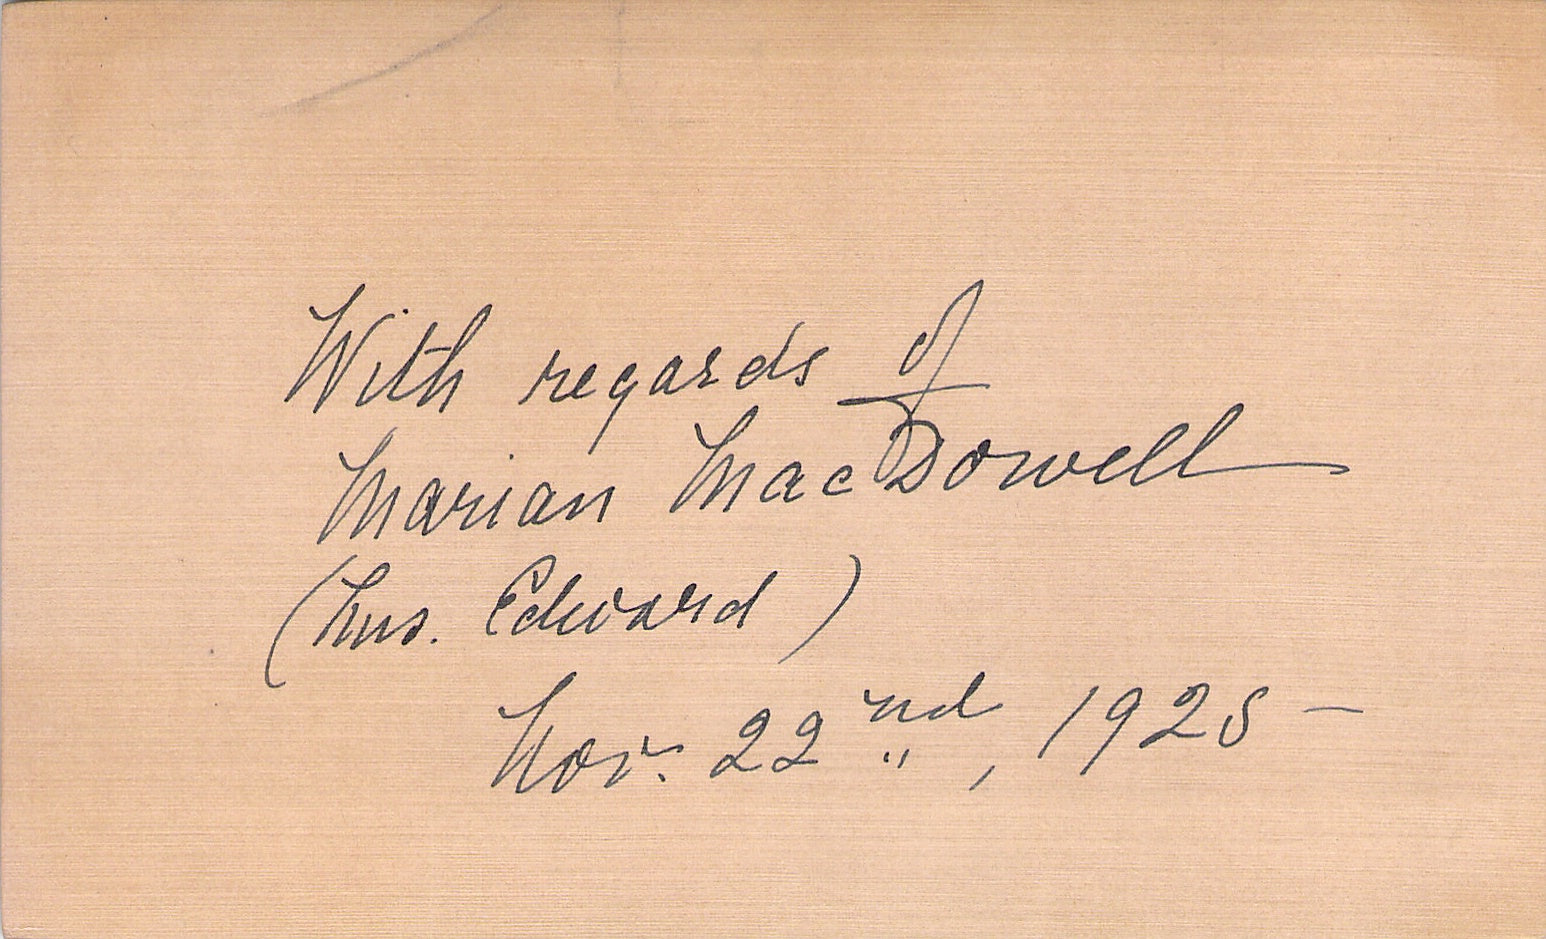 With regards of
Marian MacDowell
(Mrs. Edward)
Nov. 22nd, 1925 –